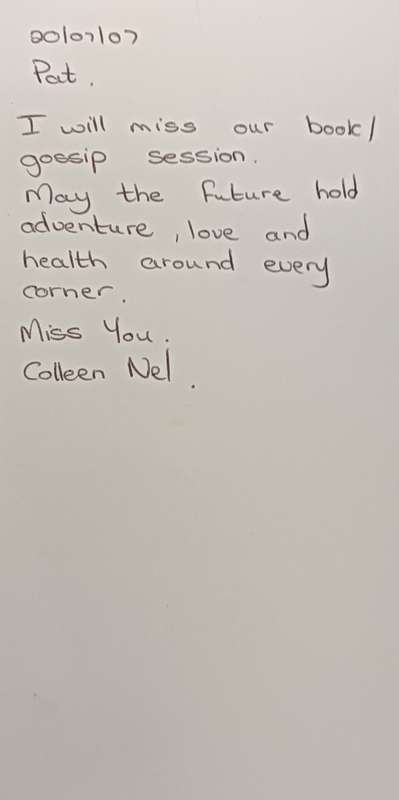 20/07/07
Pat.
I will miss our book/
gossip session.
May the future hold
adventure, love and
health around every
corner.
Miss You.
Colleen Nel.